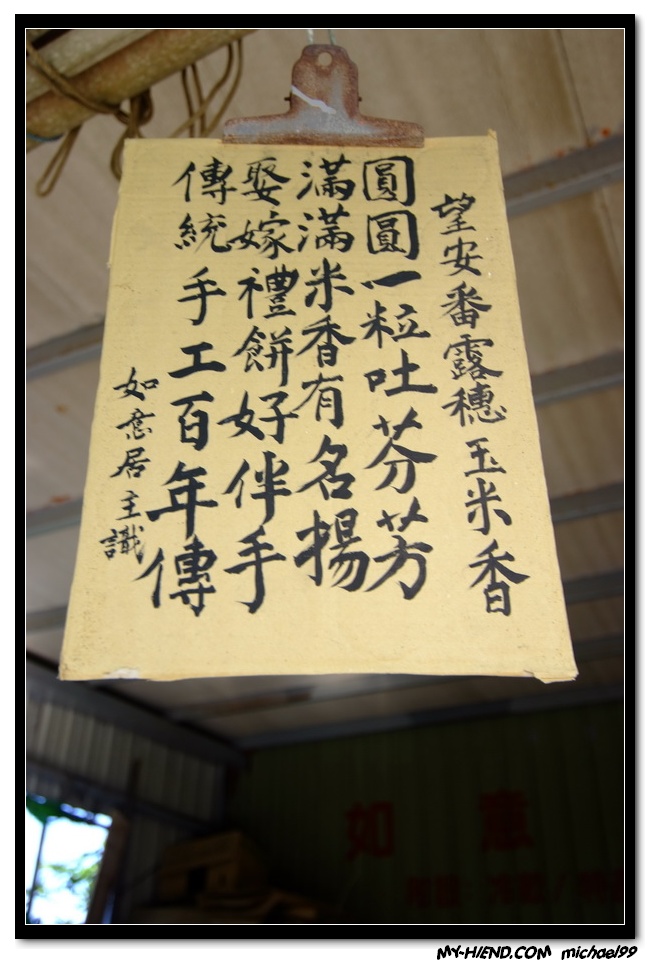 望安番露穗玉米香
圓圓一粒吐芬芳
滿滿米香有名揚
娶嫁禮餅好伴手
傳統手工百年傳
如意居主識
如意
MY-HIEND.COM michael99